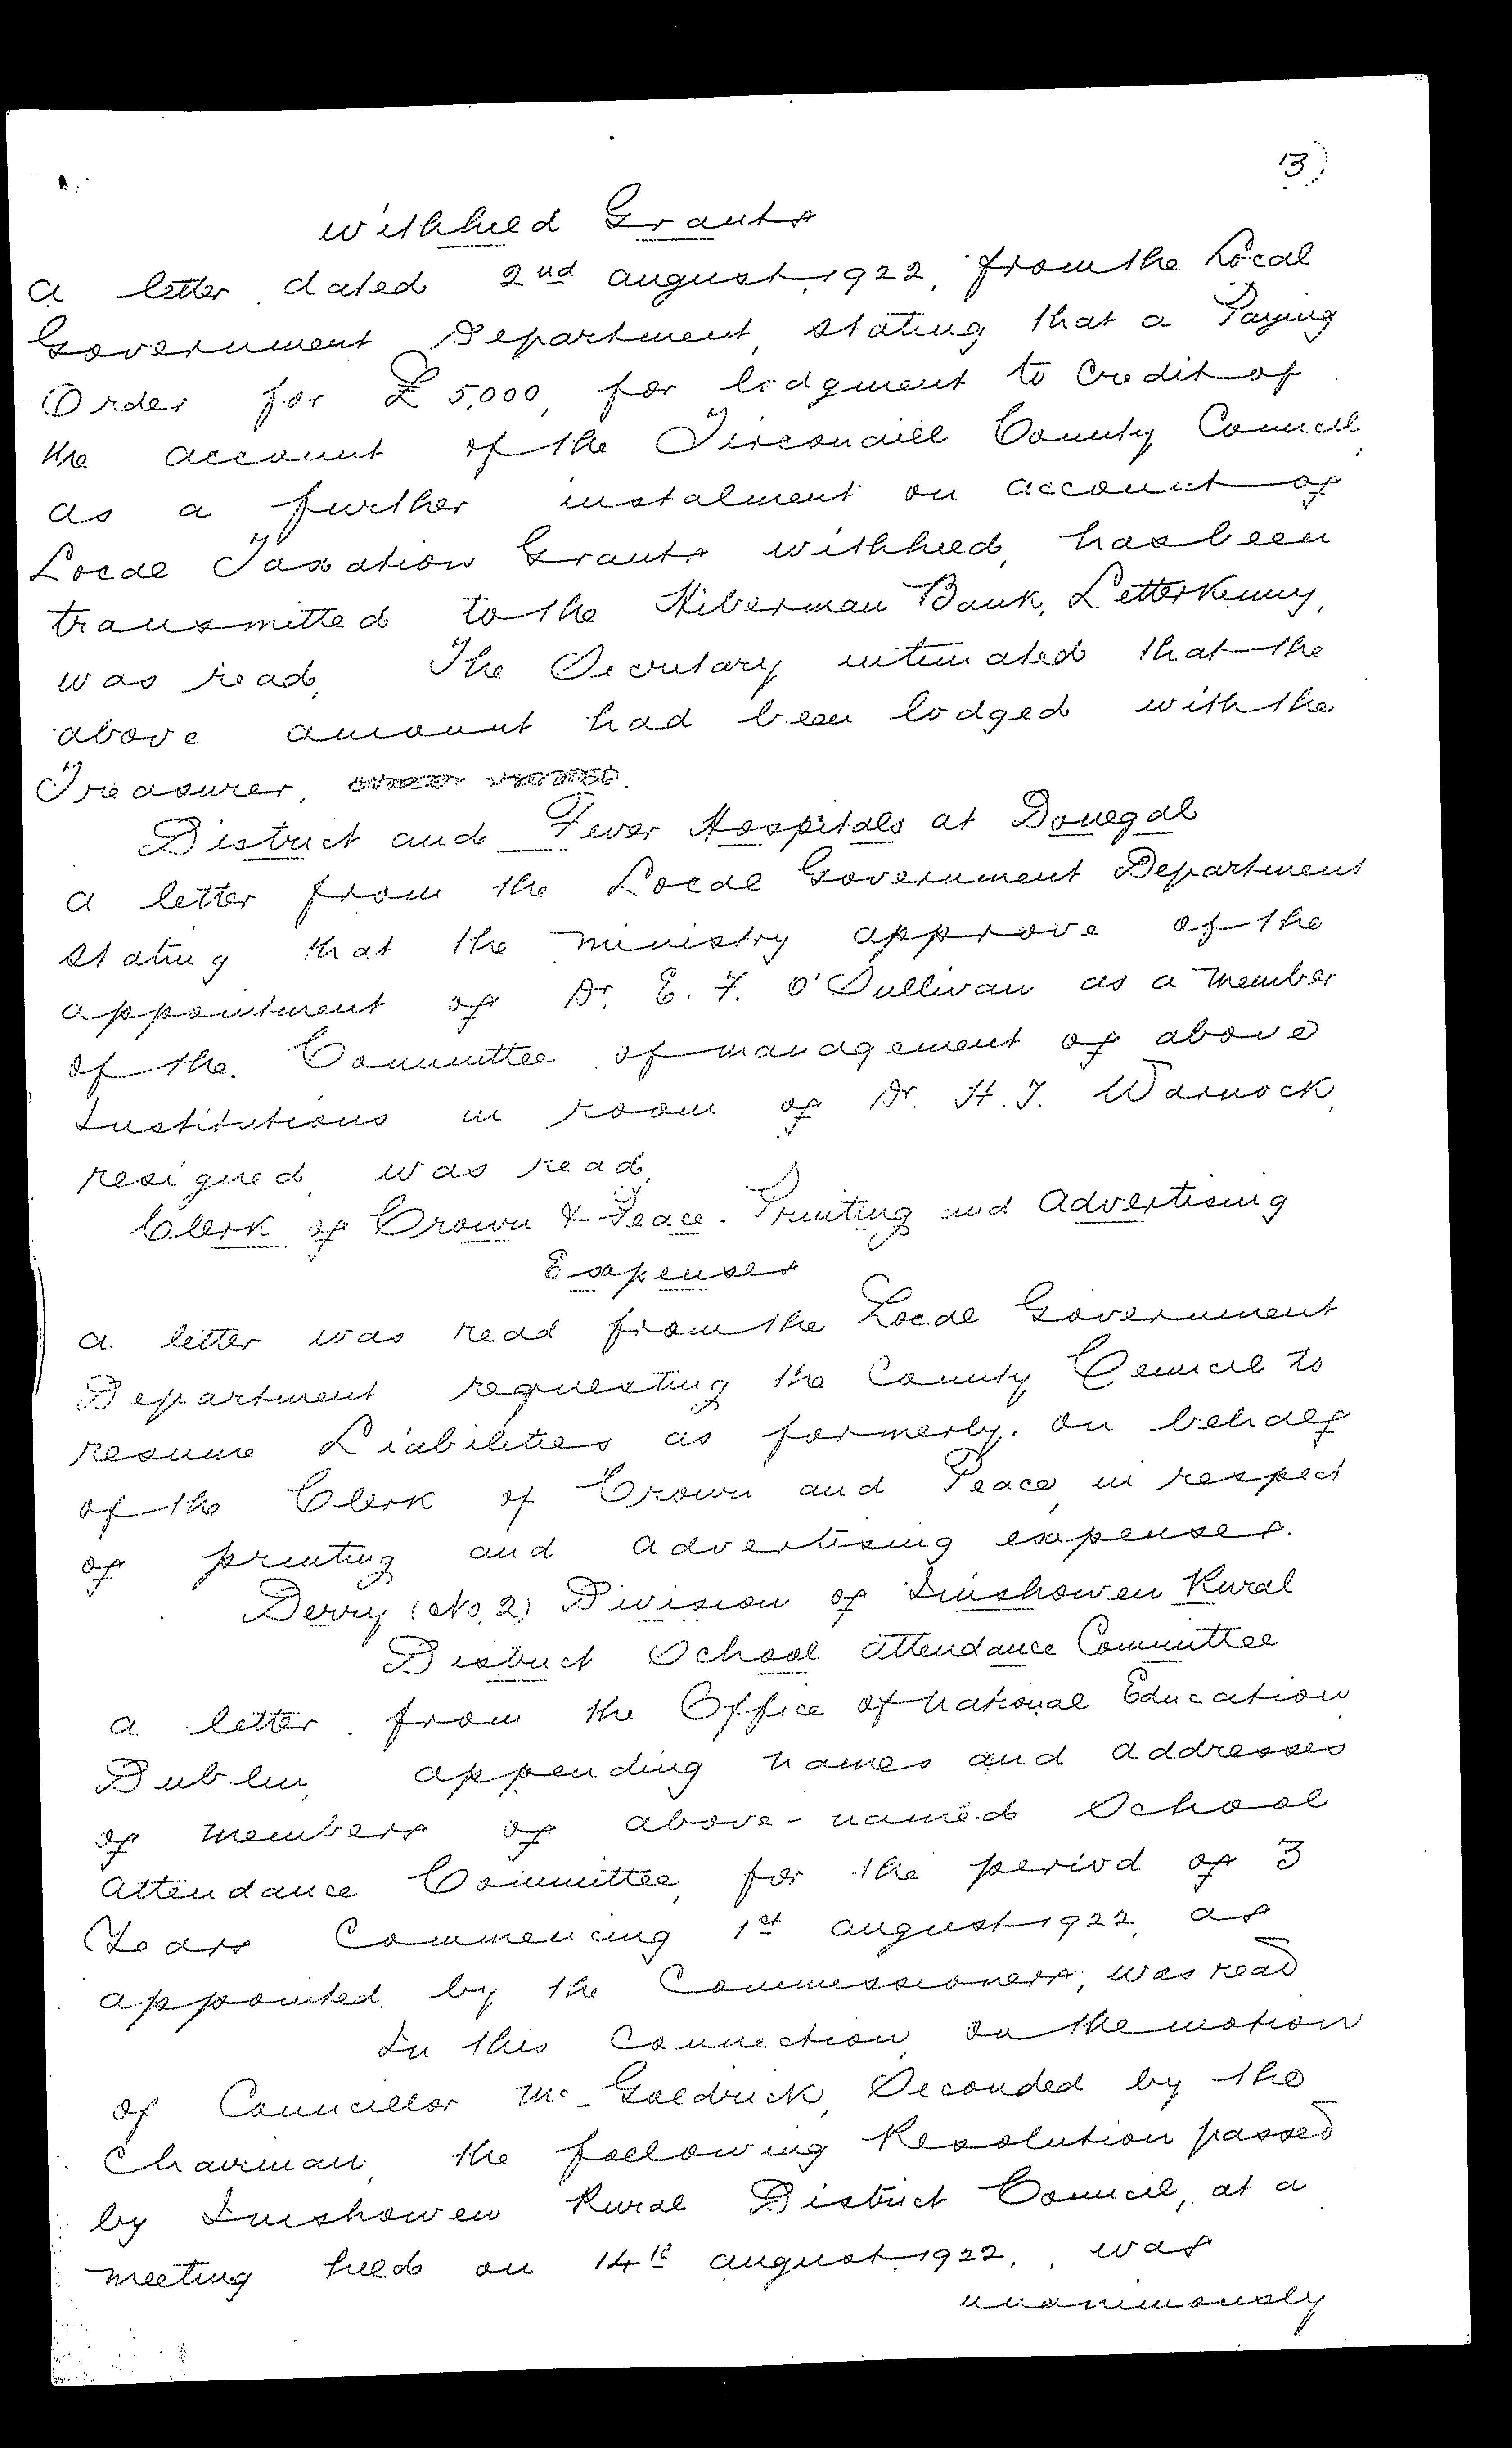 13)
Withheld Grants
A letter dated 2nd August, 1922, from the Local
Government Department, stating that a Paying
Order for £5,000, for lodgment to Credit of
the account of the Tirconaill County Council,
as a further instalment on account of
Local Taxation Grants withheld, has been
transmitted to the Hibernian Bank, Letterkenny,
was read. The Secretary intimated that the
above amount had been lodged with the
Treasurer.
District and Fever Hospitals at Donegal
A letter from the Local Government Department
stating that the Ministry approve of the
appointment of Dr. E. F. O'Sullivan as a member
of the Committee of management of above
Institutions in room of Dr. H. T. Warnock,
resigned, was read.
Clerk of Crown & Peace. Printing and Advertising
Expenses
A letter was read from the Local Government
Department requesting the County Council to
resume Liabilities as formerly, on behalf
of the Clerk of Crown and Peace, in respect
of printing and advertising expenses.
Derry (No. 2) Division of Inishowen Rural
District School Attendance Committee
A letter from the Office of National Education,
Dublin, appending names and addresses
of members of above-named School
Attendance Committee, for the period of 3
Years Commencing 1st August 1922, as
appointed by the Commissioners, was read
In this connection, on the motion
of Councillor McGoldrick, Seconded by the
Chairman, the following Resolution passed
by Inishowen Rural District Council, at a
meeting held on 14th August 1922, was
unanimously